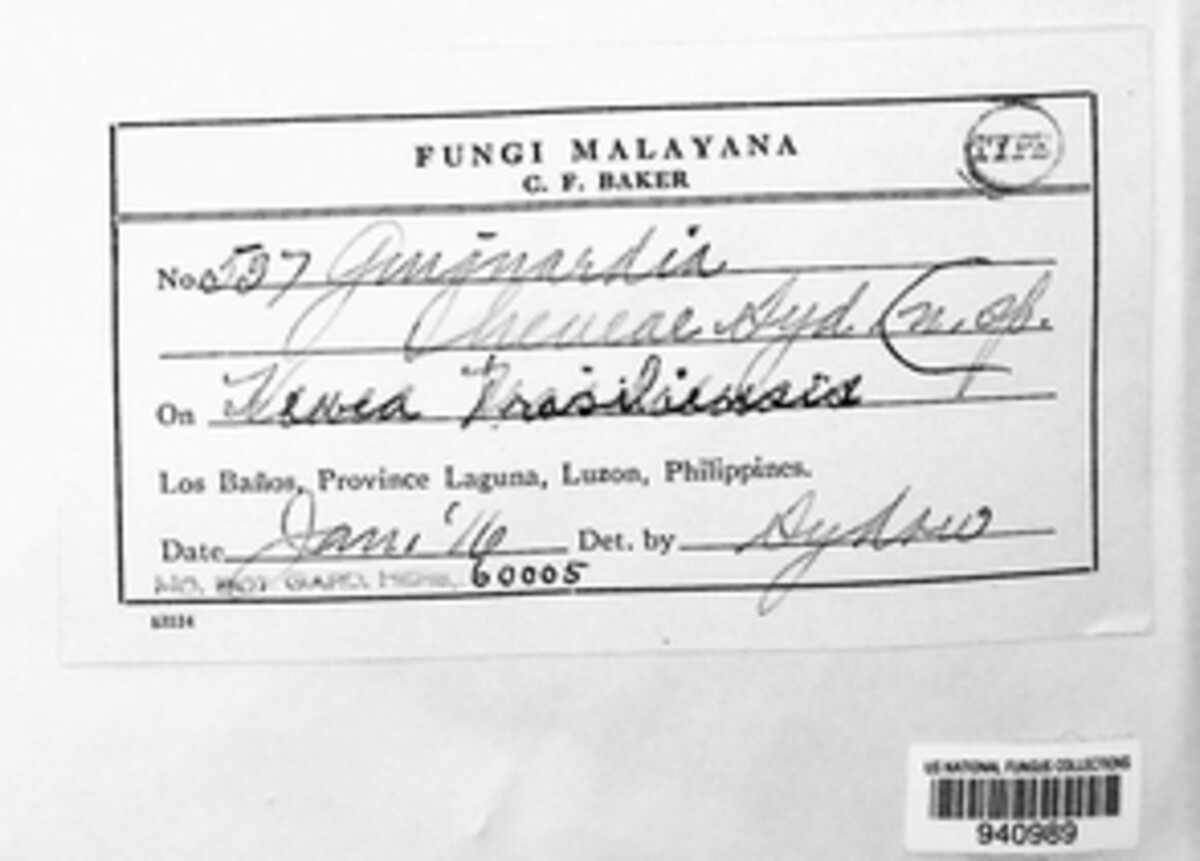 FUNGI MALAYANA
TYPE
C. F. BAKER
No. 537 Guignardia
heveae Syd. (n. sp.
On Hevea Brasiliensis
Los Baños, Province Laguna, Luzon, Philippines.
Date Jan. '16 Det. by Sydow
MO. BOT. GARD. HERB. 60005
US NATIONAL FUNGUS COLLECTIONS
940989